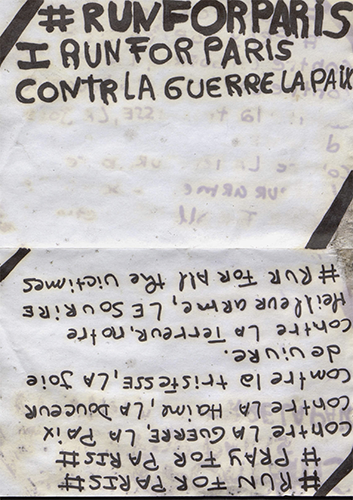 #RUNFORPARIS
I RUN FOR PARIS
CONTR LA GUERRE LA PAIX
# RUN FOR PARIS #
# PRAY FOR PARIS #
CONTRE LA GUERRE, LA PAIX
CONTRE LA HAINE, LA DOUCEUR
Comtre la tristesse, LA joie
de vivre.
contre LA Terreur, notre
Meilleur arme, LE SOURIRE
# RUR FOR All the victimes